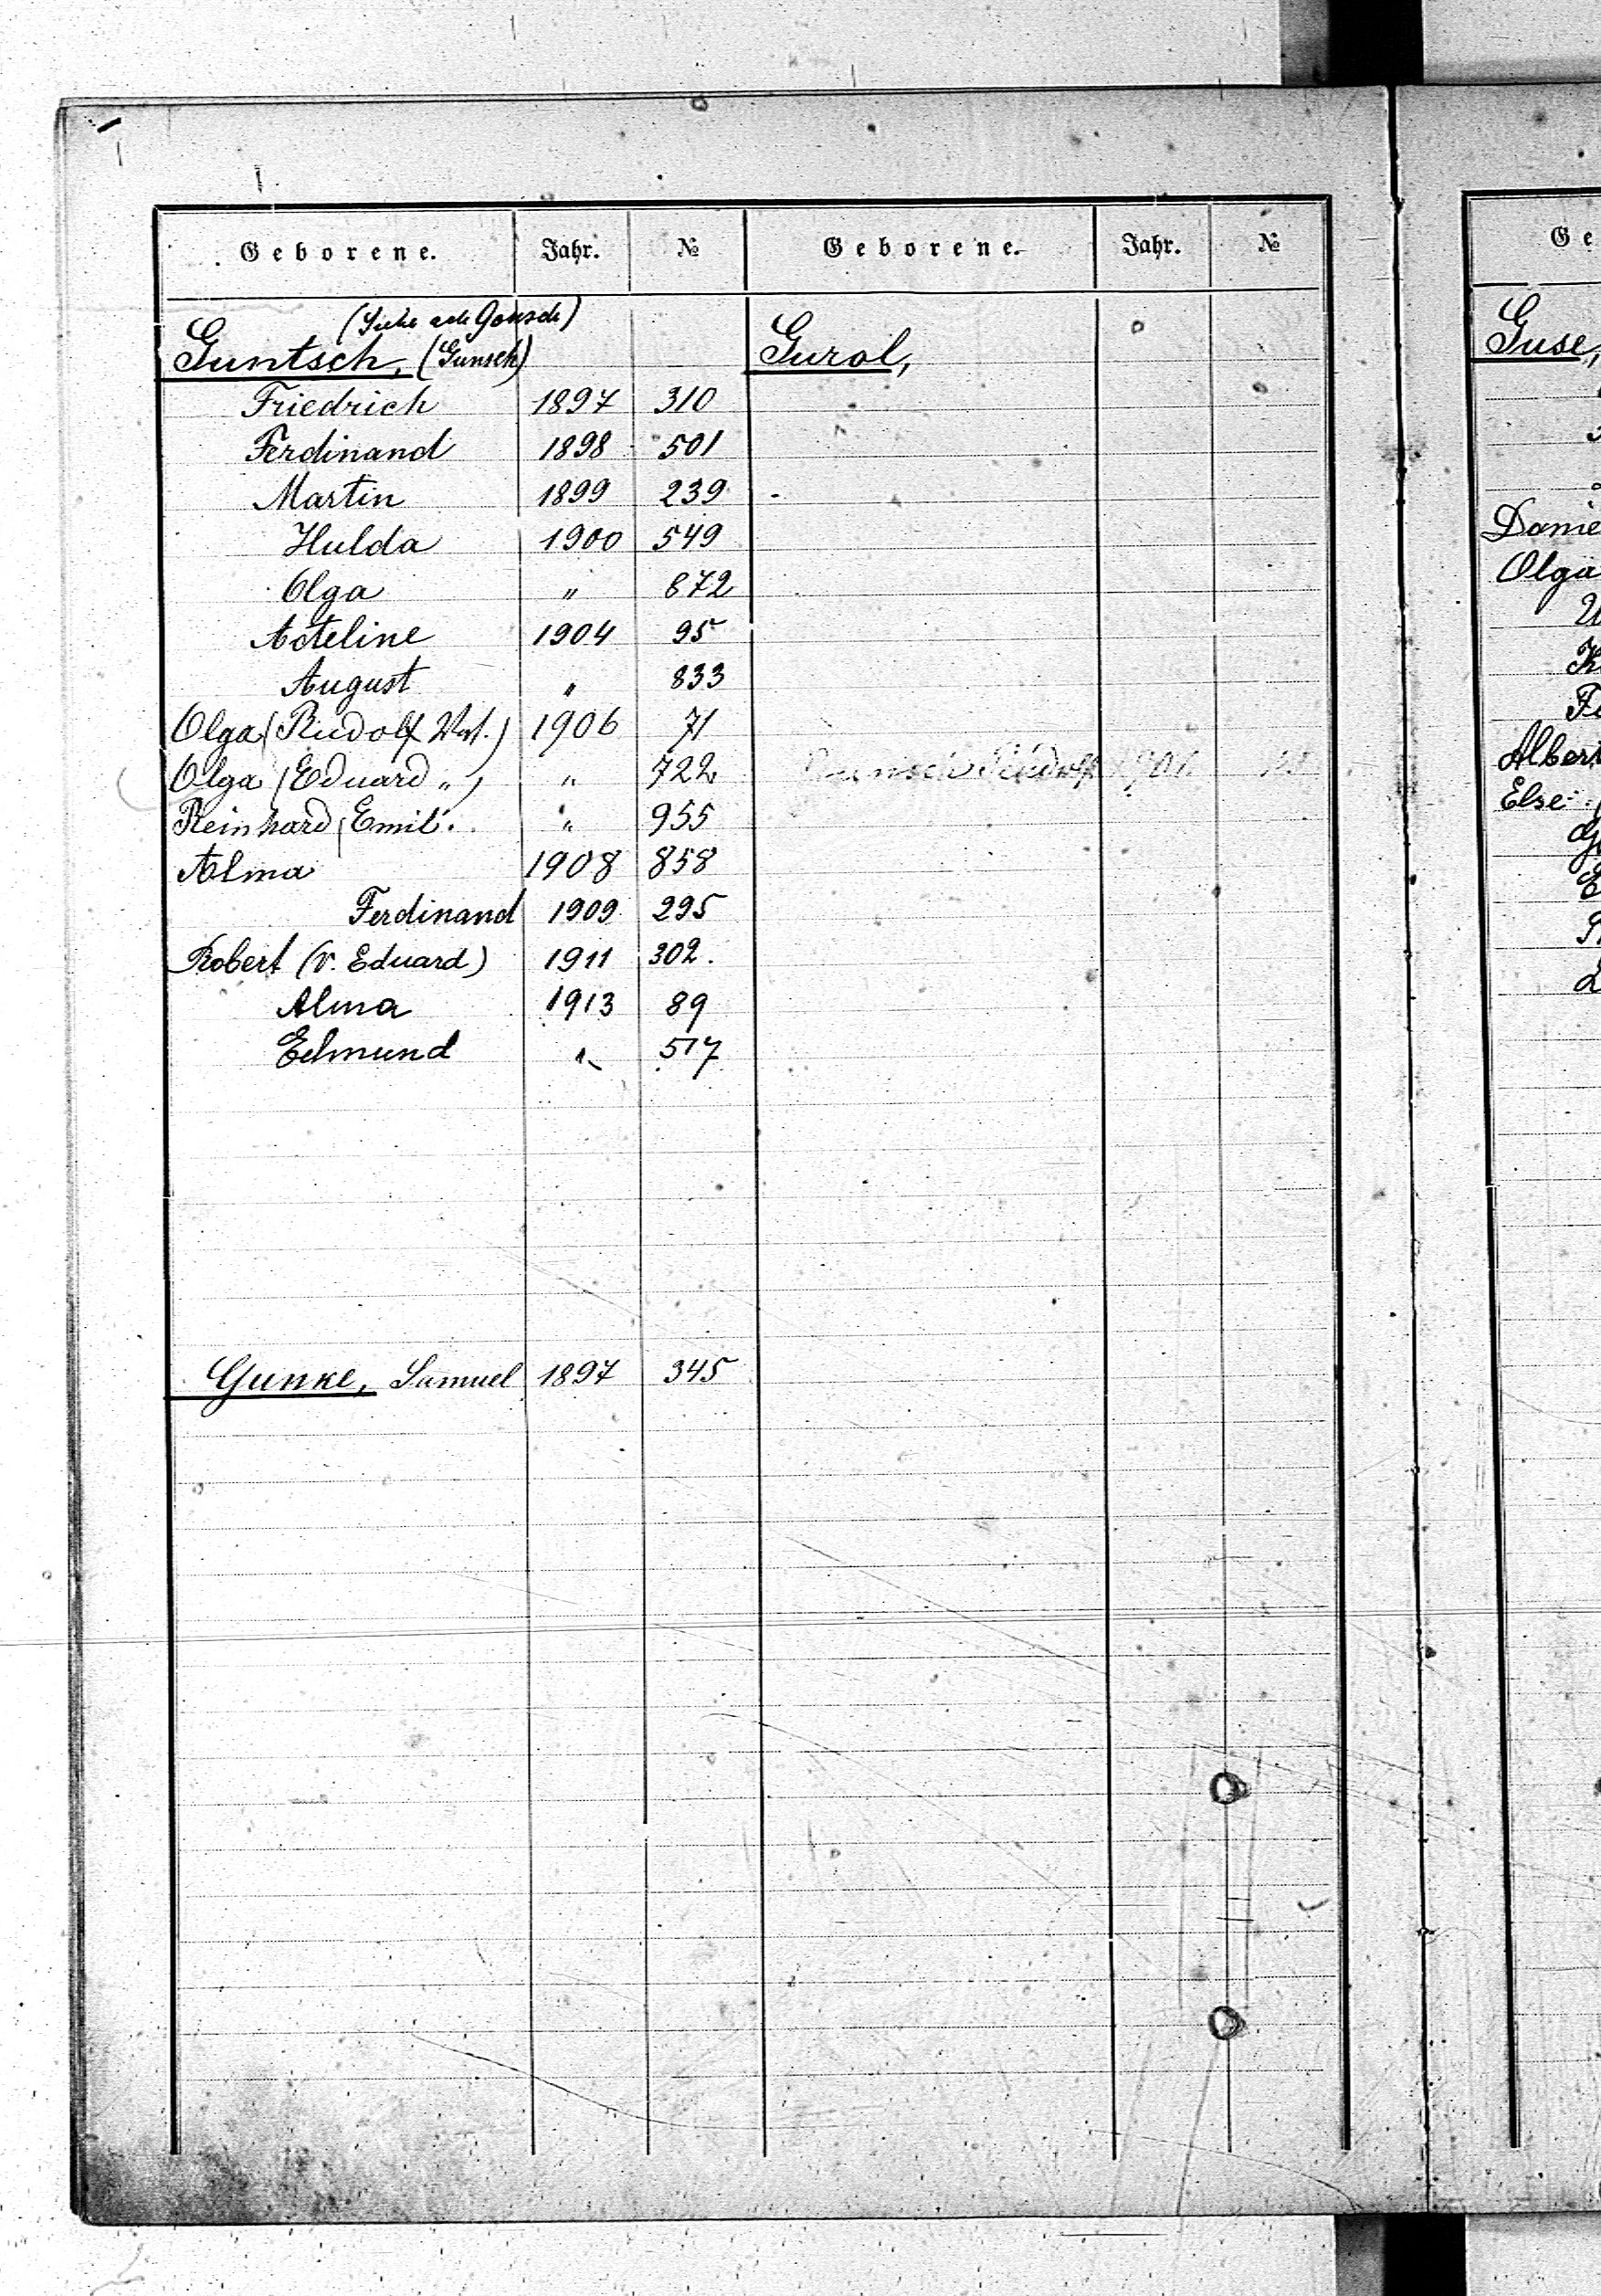 Geborene. Jahr. № Geborene. Jahr. №
(Siehe Gonsch)
Guntsch, (Gunsch)
Friedrich 1897 310
Ferdinand 1898 501
Martin 1899 239
Hulda 1900 549
Olga " 872
Adeline 1904 95
August " 833
Olga (Rudolf Vat.) 1906 71
Olga (Eduard ") " 722
Reinhard (Emil. " 955
Alma 1908 858
Ferdinand 1909 295
Robert (v. Eduard) 1911 302.
Alma 1913 89
Edmund " 517
Gunke, Samuel 1897 345
Gurol,
Rudolf
Ge
Guse,
Danie
Olga
Albert
Else